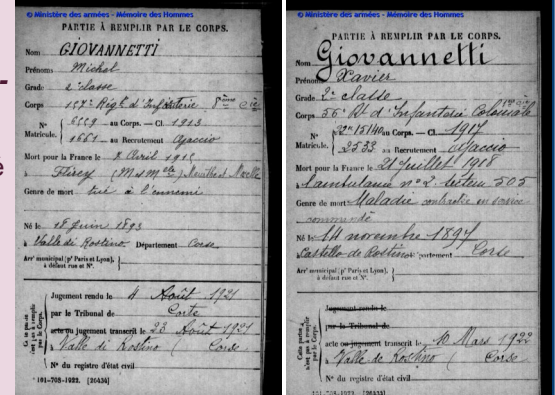 © Ministère des armées - Mémoire des Hommes
PARTIE À REMPLIR PAR LE CORPS.
Nom GIOVANNETTI
Prénoms Michel
Grade 2e classe
Corps 157e Régt d'Infanterie 8ème Cie
N° Matricule. { 6559 au Corps. — Cl. 1913
1661 au Recrutement Ajaccio
Mort pour la France le 8 Avril 1915
à Flirey (M et Mlle)
Genre de mort tué à l'ennemi
Né le 18 Juin 1893
à Valle di Rostino Département Corse
Arrt municipal (pr Paris et Lyon), à défaut rue et N°. }
Jugement rendu le 4 Août 1921
par le Tribunal de Corte
acte ou jugement transcrit le 23 Août 1921
à Valle di Rostino ( Corse
N° du registre d'état civil
101-708-1922. [26434]
© Ministère des armées - Mémoire des Hommes
PARTIE À REMPLIR PAR LE CORPS.
Nom Giovannetti
Prénoms Xavier
Grade 2e classe
Corps 56e Bn d'Infanterie Coloniale
N° Matricule. { au Corps. — Cl. 1917
2533 au Recrutement Ajaccio
Mort pour la France le 21 Juillet 1918
à l'ambulance n° 2. secteur 505
Genre de mort Maladie contractée en service
commandé
Né le 14 novembre 1897
à Castello de Rostino Département Corse
Arrt municipal (pr Paris et Lyon), à défaut rue et N°. }
Jugement rendu le
par le Tribunal de
acte ou jugement transcrit le 10 Mars 1922
à Valle de Rostino ( Corse
N° du registre d'état civil
101-708-1922. [26434]